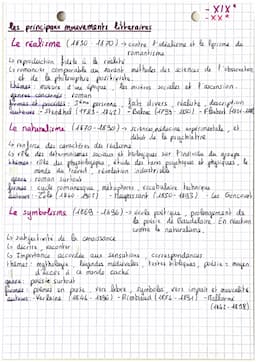 - XIX°
- XX°
Les principaux mouvements littéraires
Le réalisme (1830 - 1870) → contre l'idéalisme et le lyrisme du
romantisme
↳ reproduction fidèle à la réalité
↳ romancier comparable au savant méthodes des sciences de l'observation
et de la philosophie positiviste.
thèmes : moeurs d'une époque, les milieux sociaux et l'ascension.
genre concerné : roman
formes et procédés : 3ème personne, faits divers, réaliste, description
auteurs - Stendhal (1783 - 1842) - Balzac (1799 - 1850) - Flaubert (1821 -
Le naturalisme (1870 - 1890) → science, médecine expérimentale, et
début de la psychiatrie
↳ renforce des caractères du réalisme
↳ rôle des déterminismes sociaux et biologiques sur l'individu du groupe
thèmes : rôle du physiologique, étude des tares physiques et psychiques, le
monde du travail, révolution industrielle.
genre : roman surtout
formes : cycle romanesque, métaphores, vocabulaire technique
auteurs - Zola (1840 - 1902) - Maupassant (1850 - 1893) - Les Goncourt
Le symbolisme (1869 - 1896) → école poétique, prolongement de
la poésie de Baudelaire. En réaction
contre le naturalisme.
↳ subjectivité de la connaissance
↳ décrire, raconter
↳ Importance accordée aux sensations, correspondances
thèmes : mythologie, légendes médiévales, textes bibliques, poésie = moyen
d'accès à ce monde caché
genre : poésie surtout
formes : poèmes en prose, vers libre, symboles, vers impair et musicalité.
auteurs - Verlaine (1844 - 1896) - Rimbaud (1854 - 1891) - Mallarmé
(1842 - 1898)